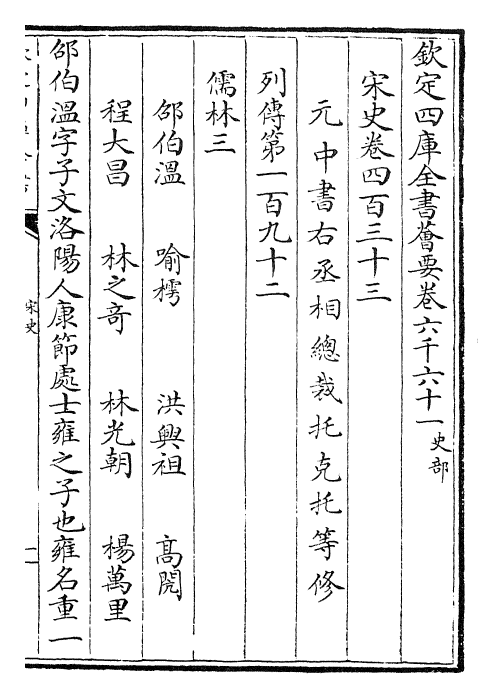 欽定四庫全書薈要卷六千六十一史部
宋史卷四百三十三
元中書右丞相總裁托克托等修
列傳第一百九十二
儒林三
邵伯溫 喻樗 洪興祖 高閌
程大昌 林之奇 林光朝 楊萬里
邵伯溫字子文洛陽人康節處士雍之子也雍名重一
宋史
一